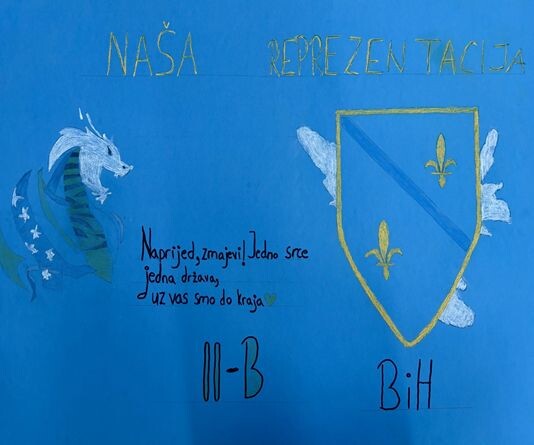 NAŠA REPREZENTACIJA
Naprijed, zmajevi! Jedno srce
jedna država,
uz vas smo do kraja
II-B
BiH